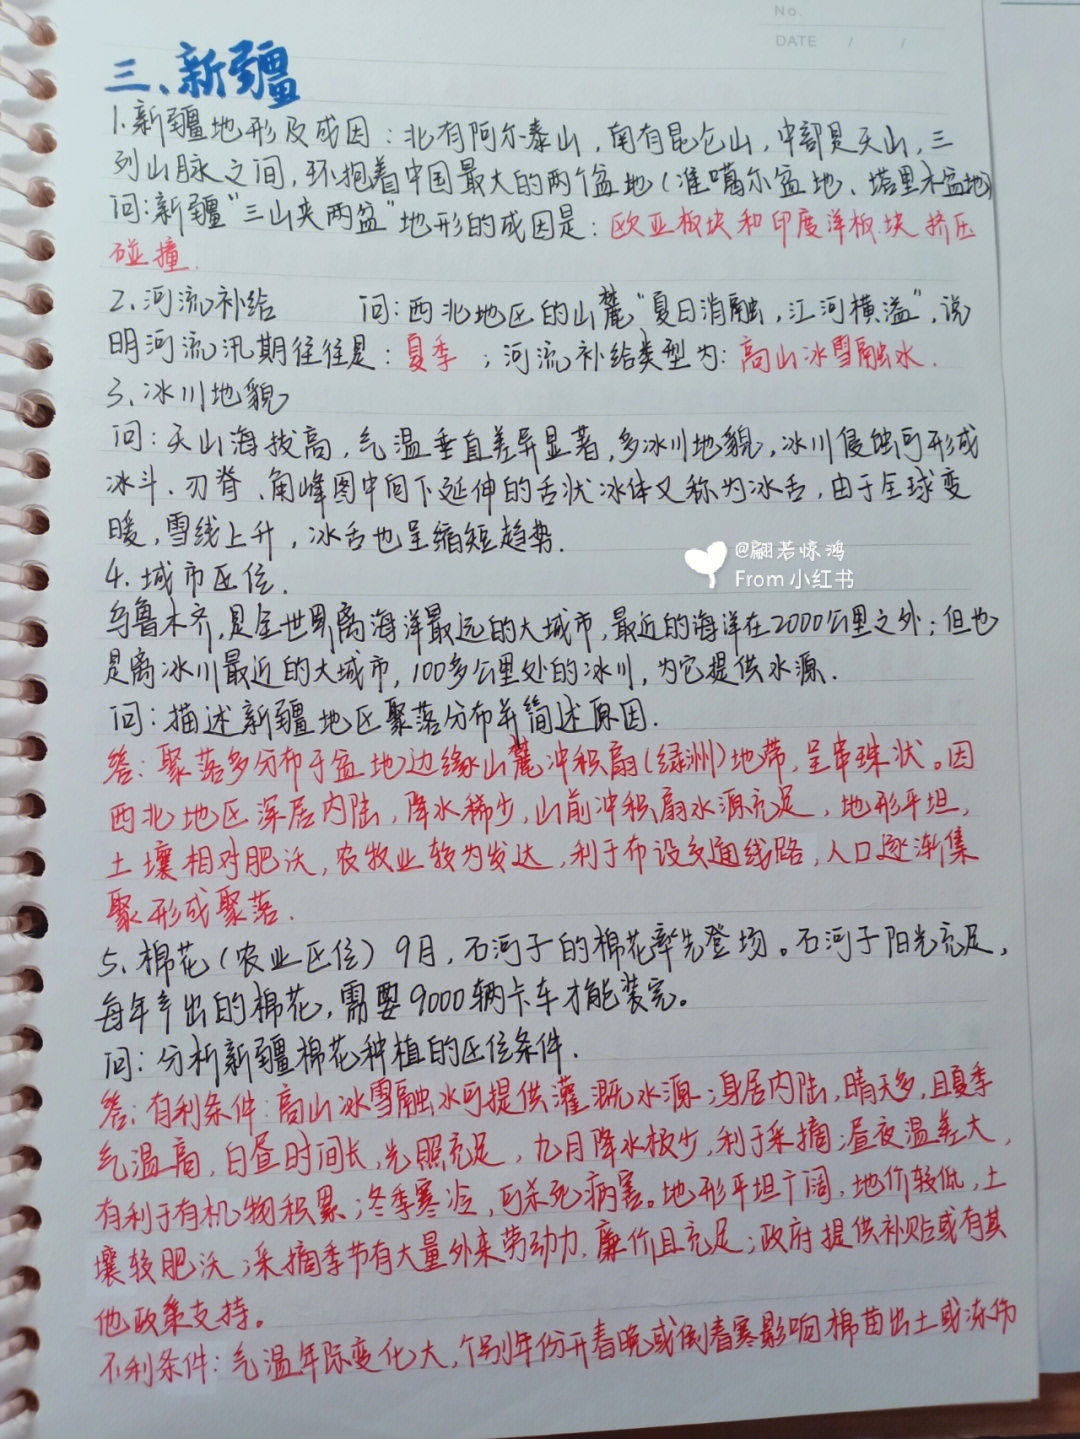 No.
DATE / /
三、新疆
1.新疆地形及成因：北有阿尔泰山，南有昆仑山，中部是天山，三
列山脉之间，环抱着中国最大的两个盆地（准噶尔盆地、塔里木盆地）
问：新疆“三山夹两盆”地形的成因是：欧亚板块和印度洋板块挤压
碰撞.
2.河流补给 问：西北地区的山麓“夏日消融，江河横溢”，说
明河流汛期往往是：夏季；河流补给类型为：高山冰雪融水.
3、冰川地貌
问：天山海拔高，气温垂直差异显著，多冰川地貌，冰川侵蚀可形成
冰斗、刃脊、角峰图中间下延伸的舌状冰体又称为冰舌，由于全球变
暖，雪线上升，冰舌也呈缩短趋势.
@翩若惊鸿
From 小红书
4.城市区位.
乌鲁木齐，是全世界离海洋最远的大城市，最近的海洋在2000公里之外；但也
是离冰川最近的大城市，100多公里处的冰川，为它提供水源.
问：描述新疆地区聚落分布并简述原因.
答：聚落多分布于盆地边缘山麓冲积扇（绿洲）地带，呈串珠状。因
西北地区深居内陆，降水稀少，山前冲积扇水源充足，地形平坦，
土壤相对肥沃，农牧业较为发达，利于布设交通线路，人口逐渐集
聚形成聚落.
5、棉花（农业区位）9月，石河子的棉花率先登场。石河子阳光充足，
每年产出的棉花，需要9000辆卡车才能装完。
问：分析新疆棉花种植的区位条件.
答：有利条件：高山冰雪融水可提供灌溉水源；身居内陆，晴天多，且夏季
气温高，白昼时间长，光照充足，九月降水极少，利于采摘；昼夜温差大，
有利于有机物积累；冬季寒冷，可杀死病害。地形平坦广阔，地价较低，土
壤较肥沃；采摘季节有大量外来劳动力，廉价且充足；政府提供补贴或有其
他政策支持。
不利条件：气温年际变化大，个别年份开春晚或倒春寒影响棉苗出土或冻伤